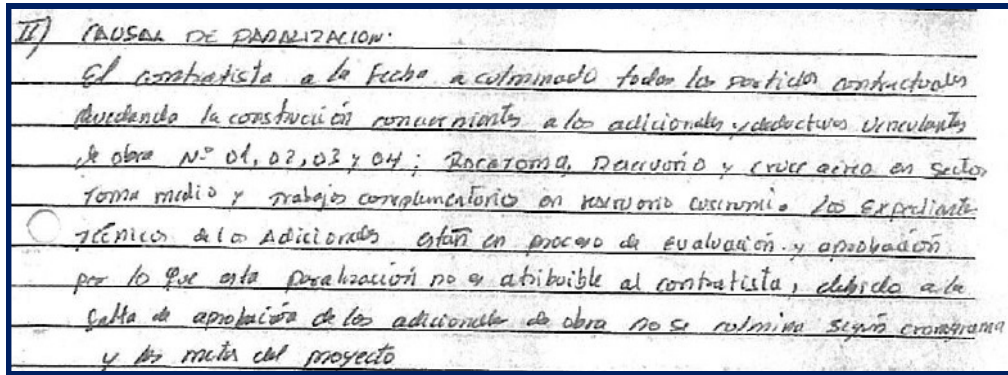 II) CAUSAL DE PARALIZACION.
El contratista a la Fecha a culminado todas las partidas contractuales
quedando la construcción concernientes a los adicionales y deductivos vinculantes
de obra Nº 01, 02, 03 y 04; Bocatoma, Reservorio y cruce aereo en Sector
Toma medio y trabajos complementarios en reservorio. Los Expediente
técnicos de los Adicionales están en proceso de evaluación y aprobación
por lo que esta paralización no es atribuible al contratista, debido a la
falta de aprobación de los adicionales de obra no se culmina según cronograma
y las metas del proyecto